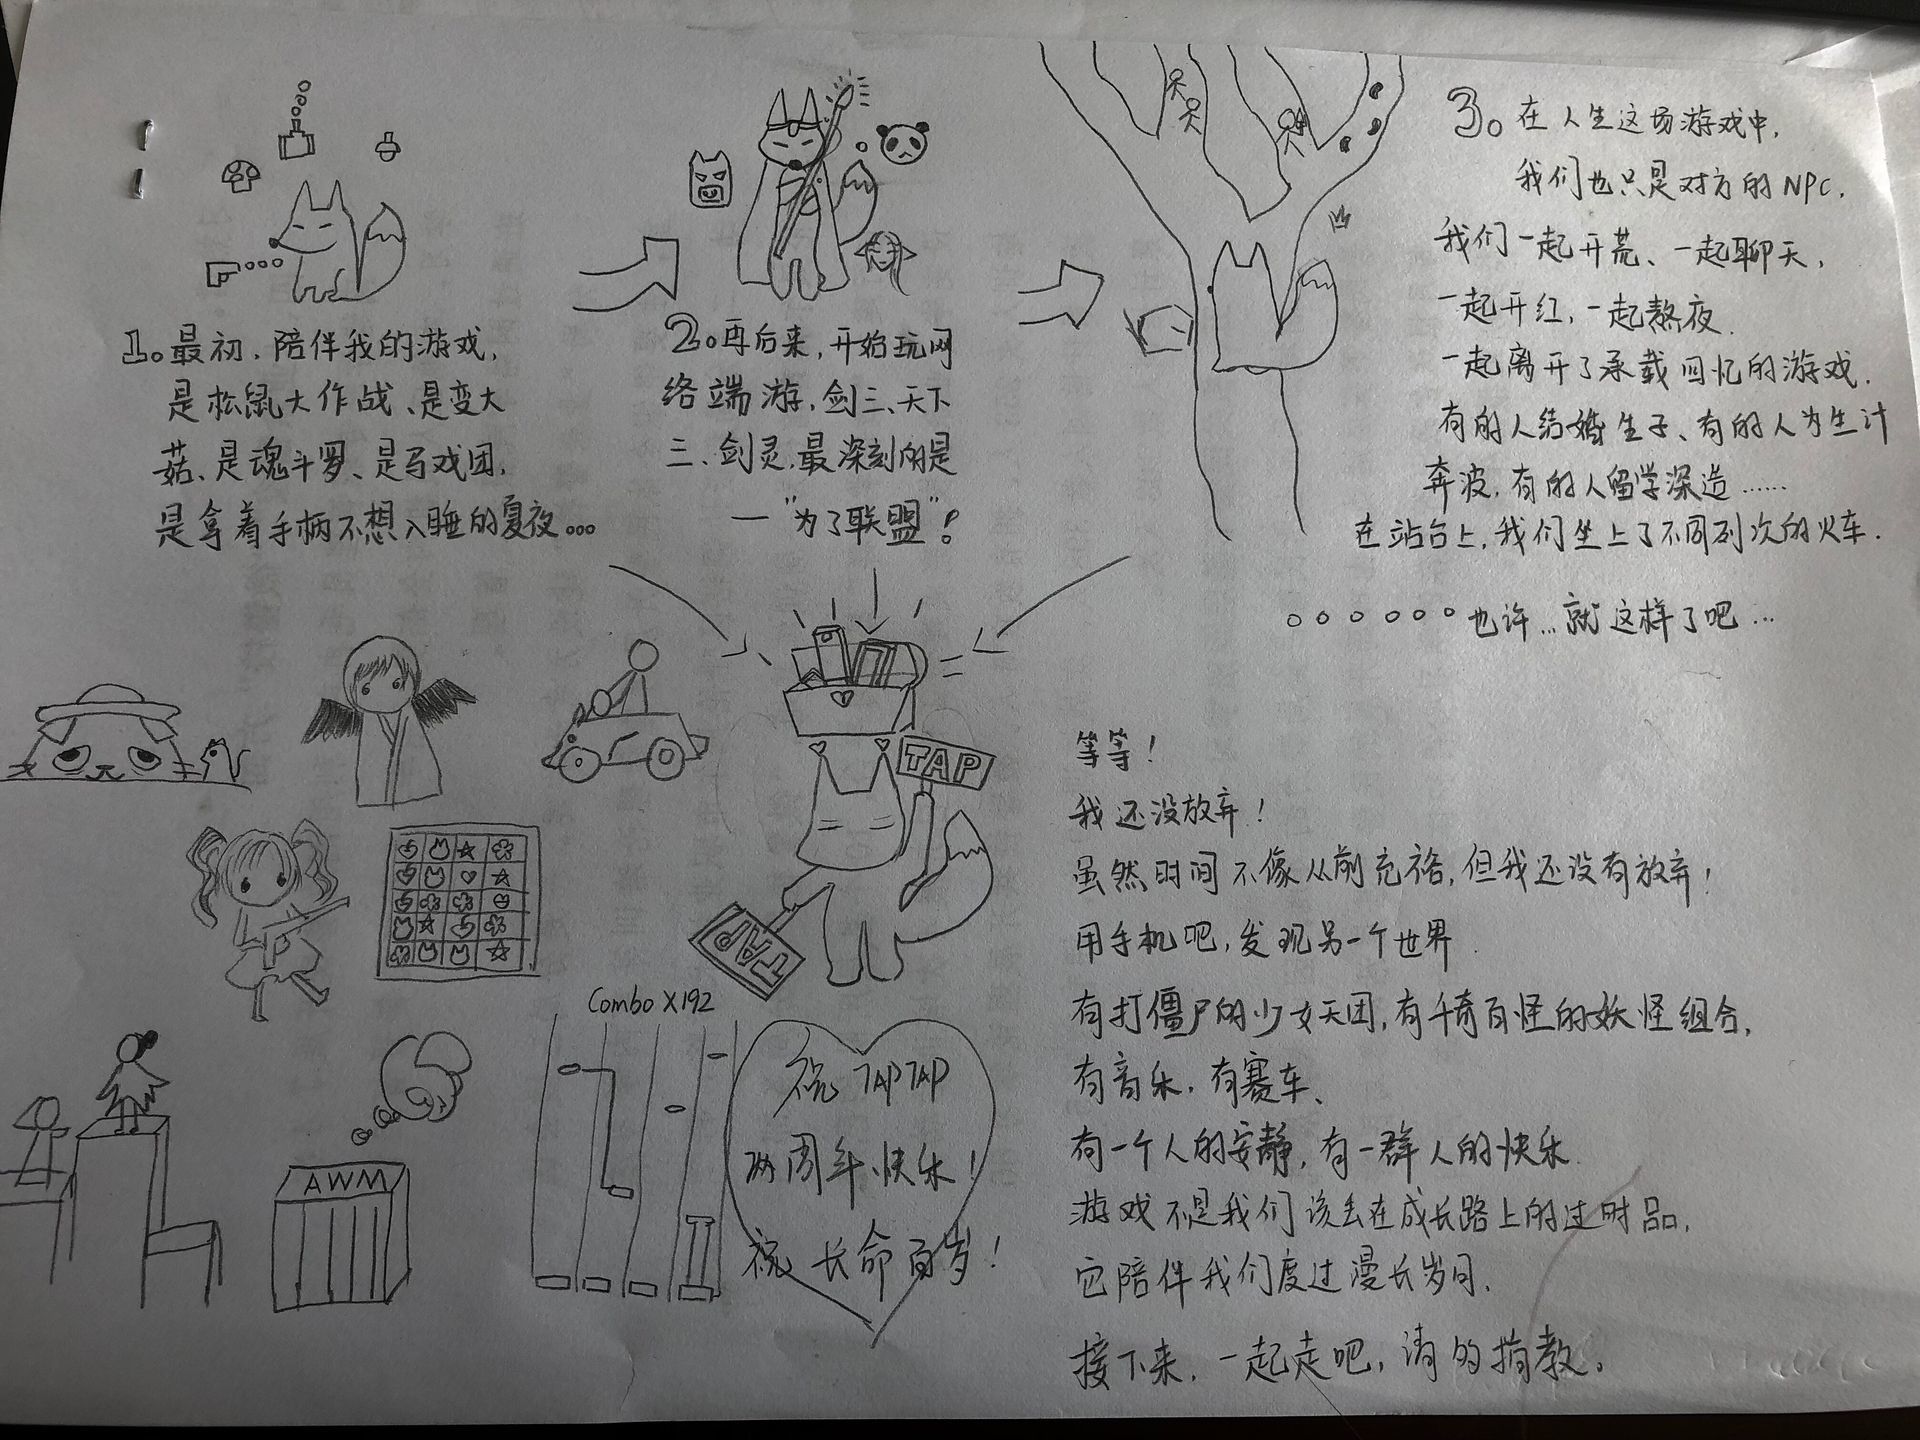 1。最初,陪伴我的游戏,
是松鼠大作战、是变大
菇、是魂斗罗、是马戏团,
是拿着手柄不想入睡的夏夜...
2。再后来,开始玩网
络端游,剑三、天下
三、剑灵,最深刻的是
—"为了联盟"!
3。在人生这场游戏中,
我们也只是对方的NPC,
我们一起开荒、一起聊天,
一起开红,一起熬夜.
一起离开了承载回忆的游戏.
有的人结婚生子、有的人为生计
奔波,有的人留学深造……
在站台上,我们坐上了不同列次的火车.
。。。。。。也许...就这样了吧...
TAP
TAP
等等!
我还没放弃!
虽然时间不像从前充裕,但我还没有放弃!
用手机吧,发现另一个世界.
有打僵尸的少女天团,有千奇百怪的妖怪组合,
有音乐,有赛车、
有一个人的安静,有一群人的快乐.
游戏不是我们该丢在成长路上的过时品,
它陪伴我们度过漫长岁月.
接下来,一起走吧,请多指教。
Combo X192
祝TAPTAP
两周年快乐!
祝长命百岁!
AWM